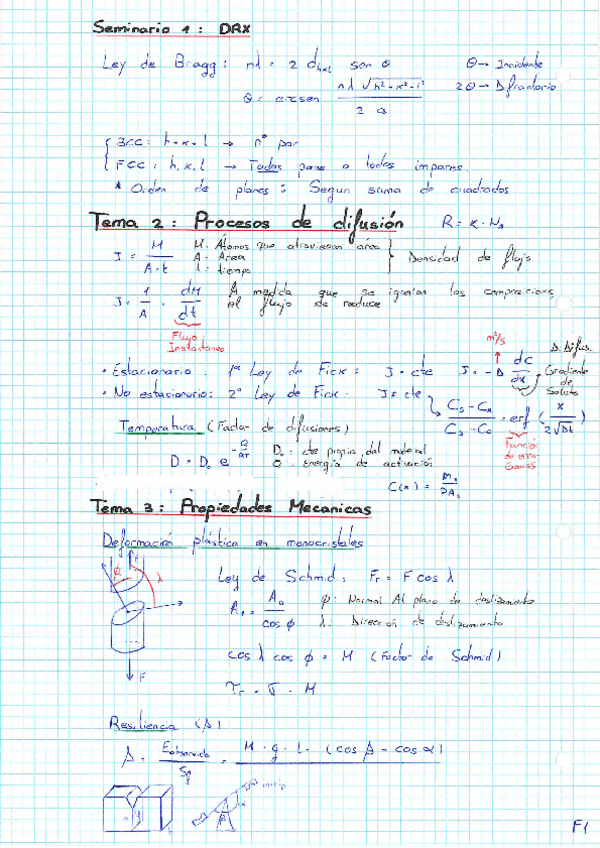 Seminario 1: DRX
Ley de Bragg: nλ = 2 d_hkl sen θ θ → Incidente
θ = arcsen (nλ √(h²+k²+l²)) / (2 a) 2θ → Difractario
BCC: h+k+l → nº par
FCC: h, k, l → Todos pares o todos impares.
* Orden de planos: Segun suma de cuadrados
Tema 2: Procesos de difusión R = K · N_A
J = M / (A·t) M: Átomos que atraviesan area
A: Área
t: tiempo
Densidad de flujo
J = 1/A · dM/dt A medida que se igualan las composiciones
el flujo se reduce
Flujo Instantaneo
m²/s
D. Difus.
• Estacionario: 1ª Ley de Fick: J = cte J = -D dc/dx Gradiente de Soluto
• No estacionario: 2ª Ley de Fick: J ≠ cte → (Cs - Cx) / (Cs - Co) = erf (x / 2√Dt)
Función de error Gauss
Temperatura (Factor de difusiones)
D = D₀ e^(-Q/RT) D₀: cte propia del material
Q: Energía de activación
C(x) =
Tema 3: Propiedades Mecanicas
Deformación plástica en monocristales
F
φ
λ
Ley de Schmid: Fr = F cos λ
A₁ = A₀ / cos φ φ: Normal Al plano de deslizamiento
λ: Dirección de deslizamiento
cos λ cos φ = M (Factor de Schmid)
τr = σ · M
F
Resiliencia (ρ)
ρ = Eabsorvida / S₀ = M · g · L · (cos β - cos α)
inicio
α
F1